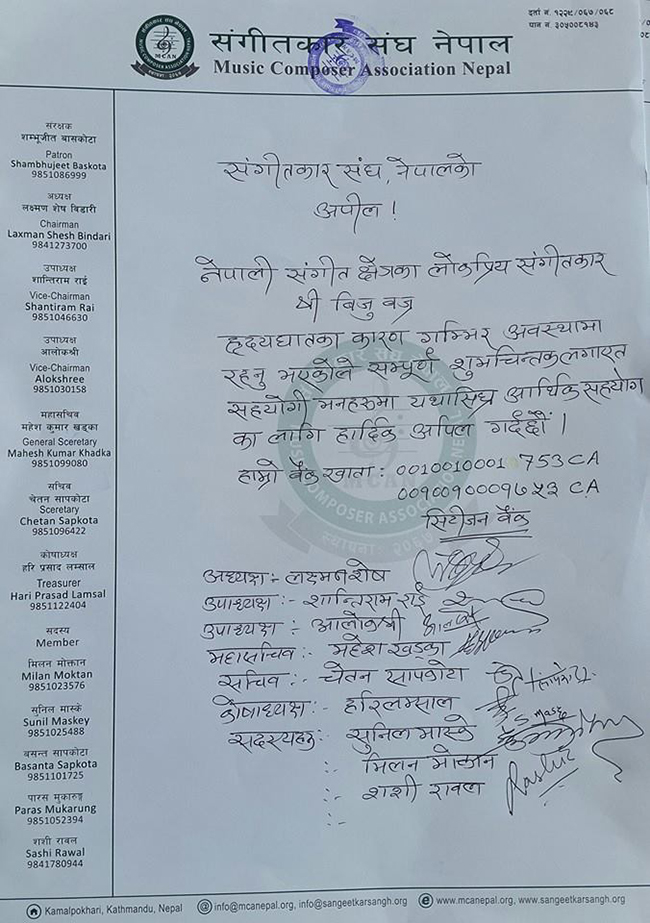 दर्ता नं. १२२९/०६७/०६८
पान नं. ३०५००८१४३
संगीतकार संघ नेपाल
Music Composer Association Nepal
MCAN
संरक्षक
शम्भूजीत बासकोटा
Patron
Shambhujeet Baskota
9851086999
अध्यक्ष
लक्ष्मण शेष बिडारी
Chairman
Laxman Shesh Bindari
9841273700
उपाध्यक्ष
शान्तिराम राई
Vice-Chairman
Shantiram Rai
9851046630
उपाध्यक्ष
आलोकश्री
Vice-Chairman
Alokshree
9851030158
महासचिव
महेश कुमार खड्का
General Sceretary
Mahesh Kumar Khadka
9851099080
सचिव
चेतन सापकोटा
Sceretary
Chetan Sapkota
9851096422
कोषाध्यक्ष
हरि प्रसाद लम्साल
Treasurer
Hari Prasad Lamsal
9851122404
सदस्य
Member
मिलन मोक्तान
Milan Moktan
9851023576
सुनिल मास्के
Sunil Maskey
9851025488
बसन्त सापकोटा
Basanta Sapkota
9851101725
पारस मुकारुङ
Paras Mukarung
9851052394
शशी रावल
Sashi Rawal
9841780944
संगीतकार संघ, नेपालको
अपील !
नेपाली संगीत क्षेत्रका लोकप्रिय संगीतकार
श्री बिजु वज्र
हृदयघातका कारण गम्भिर अवस्थामा
रहनु भएकोले सम्पूर्ण शुभचिन्तकलगाएत
सहयोगी मनहरुमा यथासिघ्र आर्थिक सहयोग
का लागि हार्दिक अपिल गर्दछौं ।
हाम्रो बैंक खाता : 0010010001753CA
००१००१०००१७५३ CA
सिटीजन बैंक
अध्यक्ष:- लक्ष्मण शेष
उपाध्यक्ष :- शान्तिराम राई
उपाध्यक्ष :- आलोकश्री
महासचिव:- महेश खड्का
सचिव :- चेतन सापकोटा
कोषाध्यक्ष :- हरि लम्साल
सदस्यहरु :- सुनिल मास्के
:- मिलन मोक्तान
:- शशी रावल
:-
Kamalpokhari, Kathmandu, Nepal info@mcanepal.org, info@sangeetkarsangh.org www.mcanepal.org, www.sangeetkarsangh.org